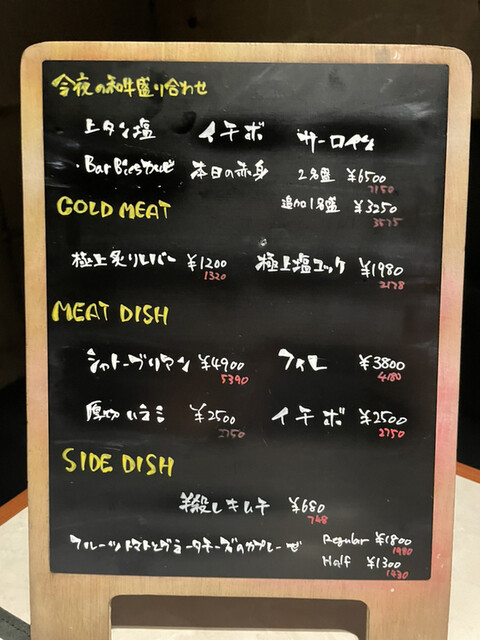 今夜の和牛盛り合わせ
上タン塩 イチボ サーロイン
本日の赤身 2名盛 ¥6500
7150
追加1名盛 ¥3250
3575
COLD MEAT
極上炙りレバー ¥1200 極上塩ユッケ ¥1980
1320 2178
MEAT DISH
シャトーブリアン ¥4900 フィレ ¥3800
5390 4180
厚切ハラミ ¥2500 イチボ ¥2500
2750 2750
SIDE DISH
キムチ ¥680
748
フルーツトマトとブラータチーズのカプレーゼ Regular ¥1800
1980
Half ¥1300
1430